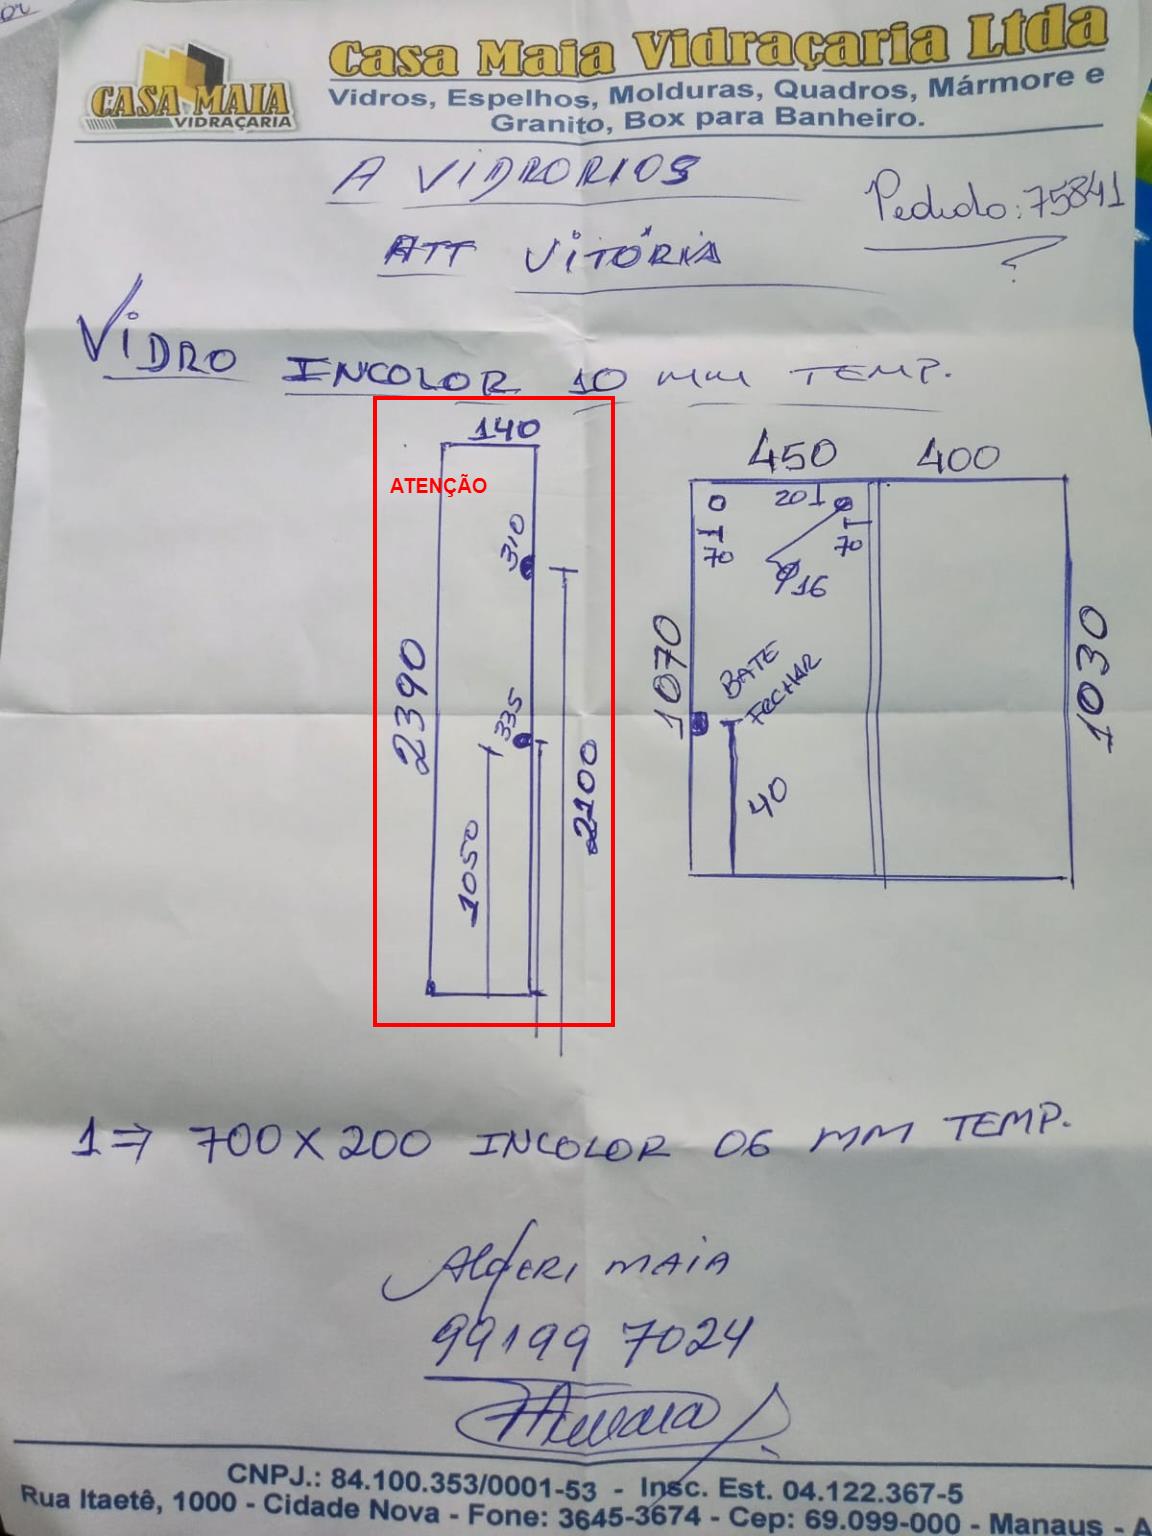 CASA MAIA
VIDRAÇARIA
Casa Maia Vidraçaria Ltda
Vidros, Espelhos, Molduras, Quadros, Mármore e
Granito, Box para Banheiro.
A VIDRORIOS
Pedido: 75841
ATT VITÓRIA
?
VIDRO INCOLOR 10 MM TEMP.
140
ATENÇÃO
310
2390
335
1050
2100
450 400
20
70
70
Ø16
1070
BATE
FECHAR
40
1030
1⇒ 700X200 INCOLOR 06 MM TEMP.
ALGERI MAIA
99199 7024
CNPJ.: 84.100.353/0001-53 - Insc. Est. 04.122.367-5
Rua Itaetê, 1000 - Cidade Nova - Fone: 3645-3674 - Cep: 69.099-000 - Manaus - A